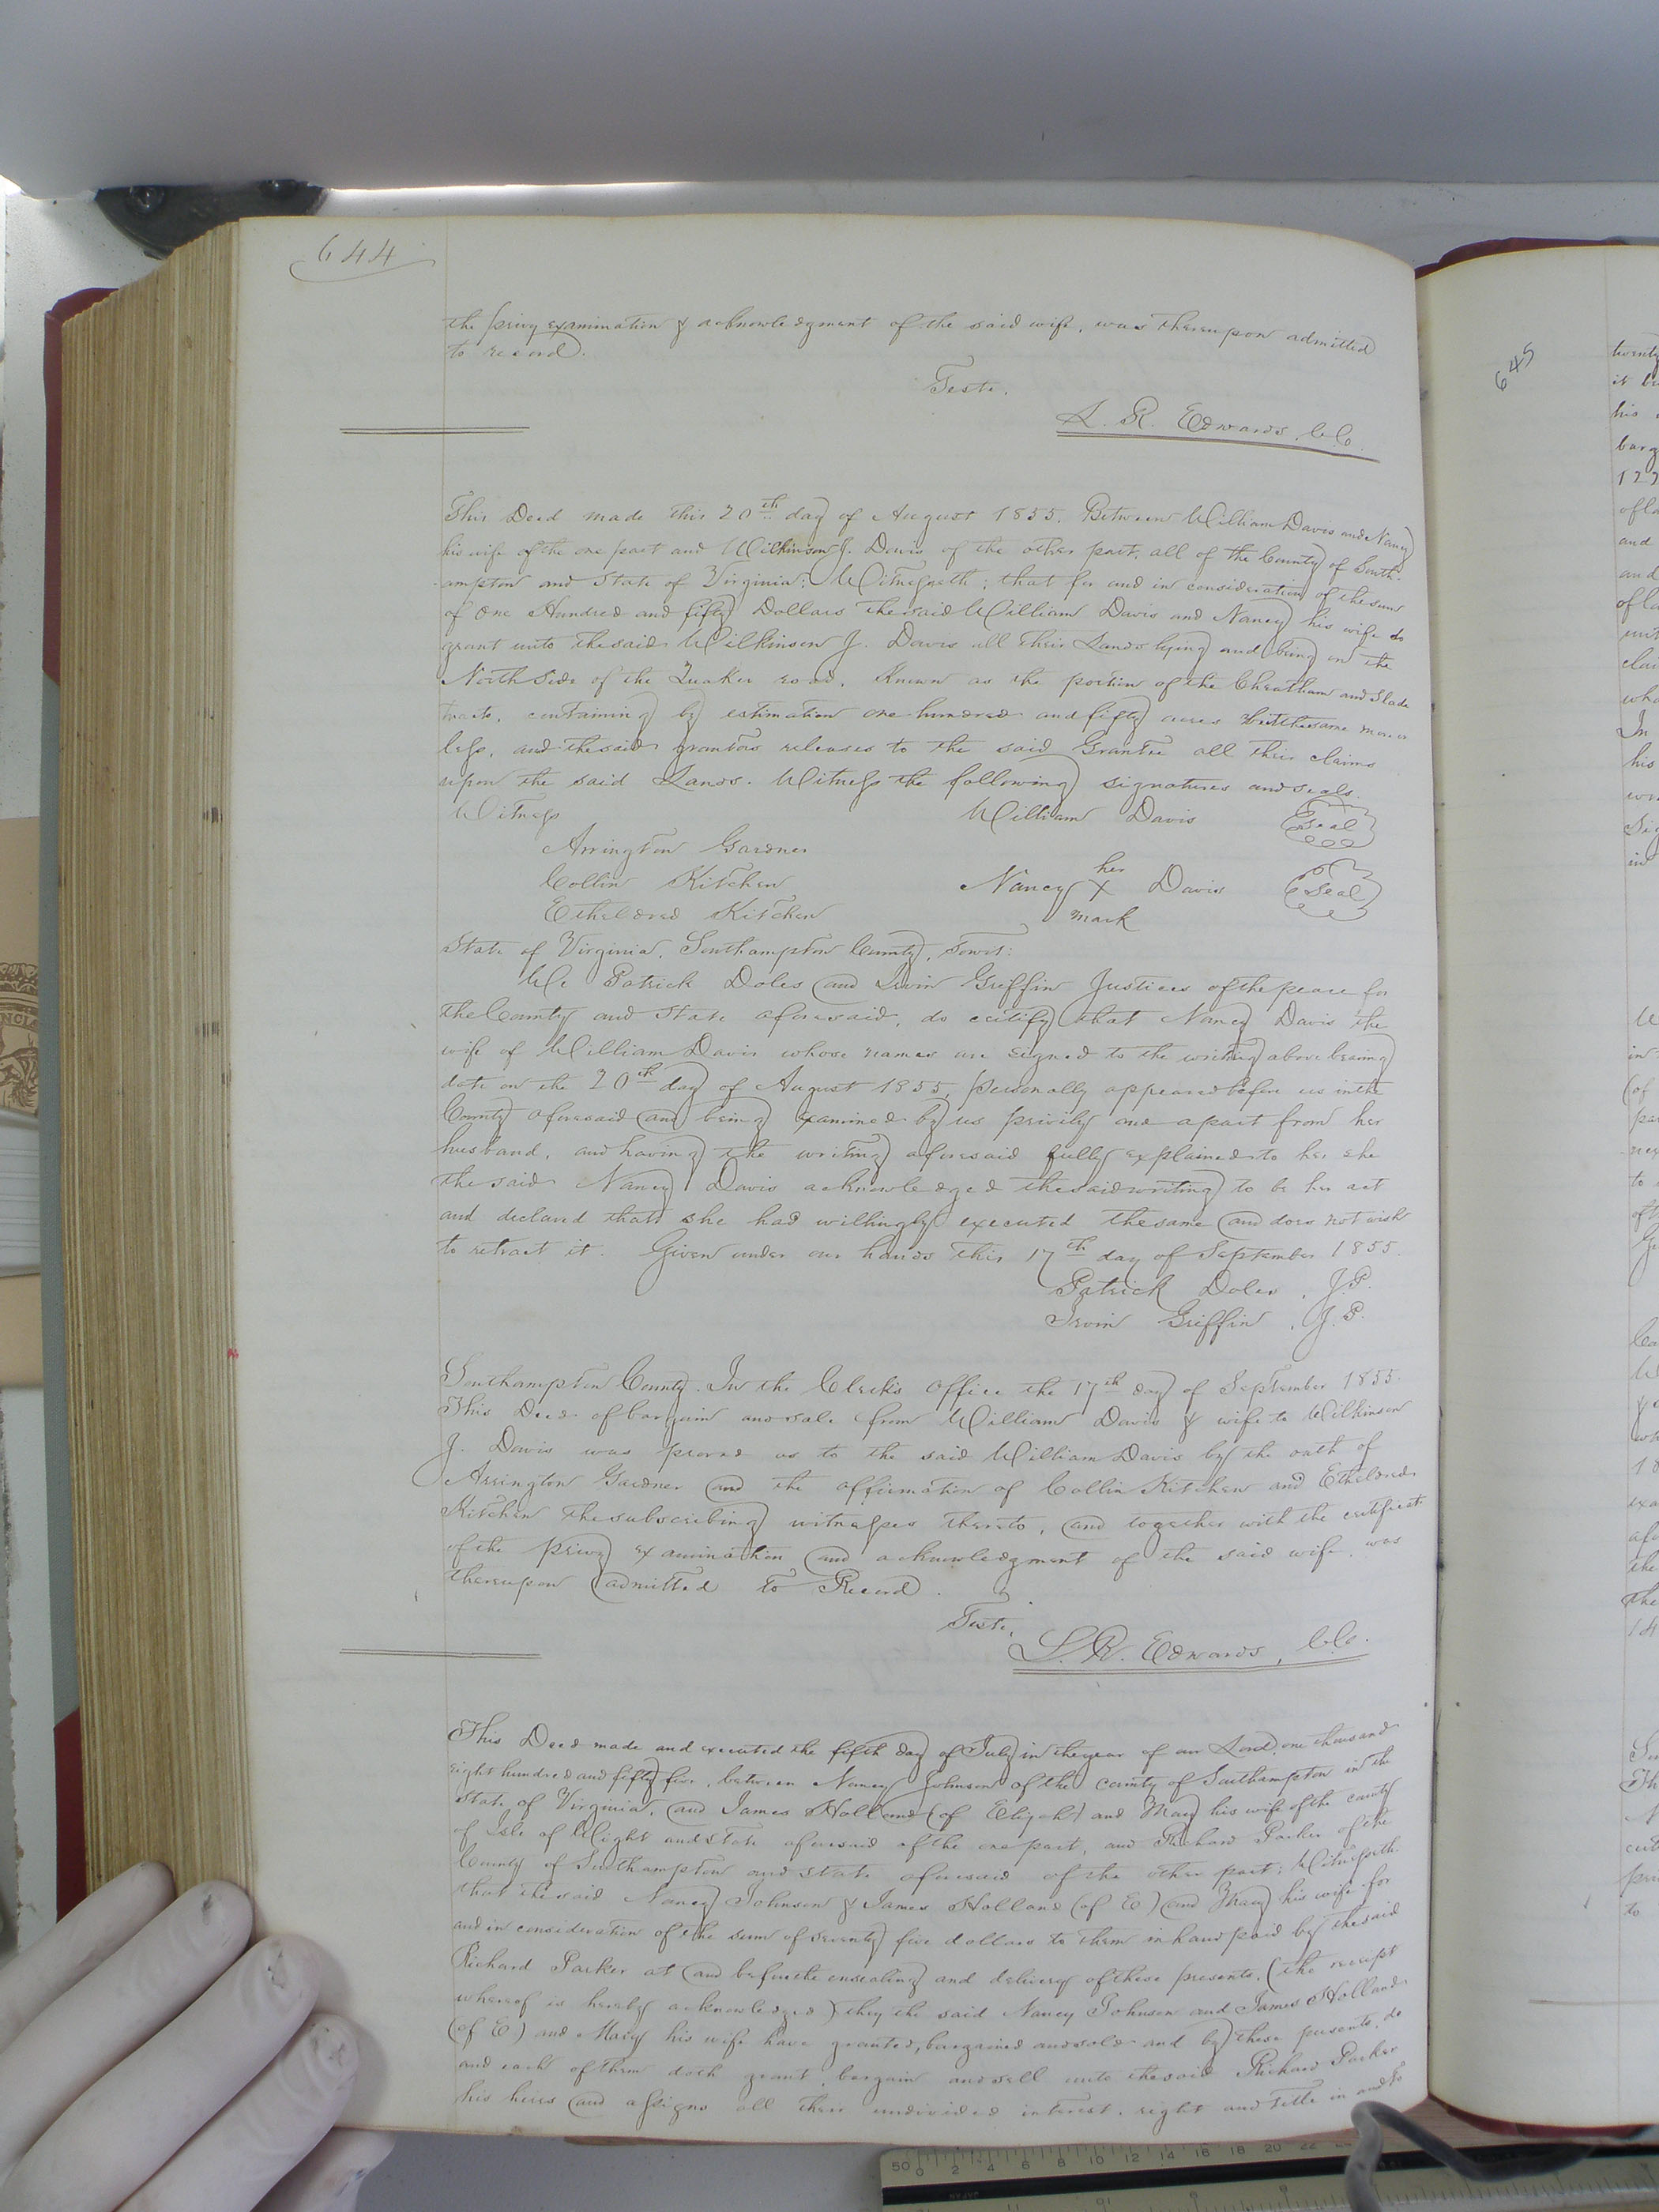 644
the privy examination & acknowledgment of the said wife, was thereupon admitted
to record.
Teste.
L. R. Edwards, C.C.
This Deed made this 20th day of August 1855. Between William Davis and Nancy
his wife of the one part and Wilkinson J. Davis of the other part, all of the County of South-
ampton and State of Virginia: Witnesseth; that for and in consideration of the sum
of One Hundred and fifty Dollars the said William Davis and Nancy his wife do
grant unto the said Wilkinson J. Davis all their Lands lying and being on the
North Side of the Quaker road. Known as the portion of the Cheatham and Slade
tracts, containing by estimation one hundred and fifty acres be the same more or
less, and the said grantors releases to the said Grantee all their claims
upon the said Lands. Witness the following signatures and seals.
Witness William Davis Seal
Arrington Gardner
Collin Kitchen her
Nancy X Davis Seal
Etheldred Kitchen mark
State of Virginia, Southampton County, Towit:
We Patrick Doles and Irvin Griffin Justices of the peace for
the County and State aforesaid, do certify that Nancy Davis the
wife of William Davis whose names are signed to the writing above bearing
date on the 20th day of August 1855, personally appeared before us in the
County aforesaid and being examined by us privily and apart from her
husband, and having the writing aforesaid fully explained to her she
the said Nancy Davis acknowledged the said writing to be her act
and declared that she had willingly executed the same and does not wish
to retract it. Given under our hands this 17th day of September 1855.
Patrick Doles, J.P.
Irvin Griffin, J.P.
Southampton County. In the Clerk's Office the 17th day of September 1855.
This Deed of bargain and sale from William Davis & wife to Wilkinson
J. Davis was proved as to the said William Davis by the oath of
Arrington Gardner and the affirmation of Collin Kitchen and Etheldred
Kitchen the subscribing witnesses thereto, and together with the certificate
of the privy examination and acknowledgment of the said wife, was
thereupon admitted to Record.
Teste,
L. R. Edwards, C.C.
This Deed made and executed the fifth day of July in the year of our Lord, one thousand
eight hundred and fifty five, between Nancy Johnson of the county of Southampton in the
State of Virginia, and James Holland (of Elijah) and Mary his wife of the county
of Isle of Wight and State aforesaid of the one part, and Richard Parker of the
County of Southampton and State aforesaid of the other part: Witnesseth.
that the said Nancy Johnson & James Holland (of E) and Mary his wife for
and in consideration of the sum of seventy five dollars to them in hand paid by the said
Richard Parker at and before the ensealing and delivery of these presents. (the receipt
whereof is hereby acknowledged) they the said Nancy Johnson and James Holland
(of E.) and Mary his wife have granted, bargained and sold and by these presents, do
and each of them doth grant, bargain and sell unto the said Richard Parker
his heirs and assigns all their undivided interest, right and title in and to
645